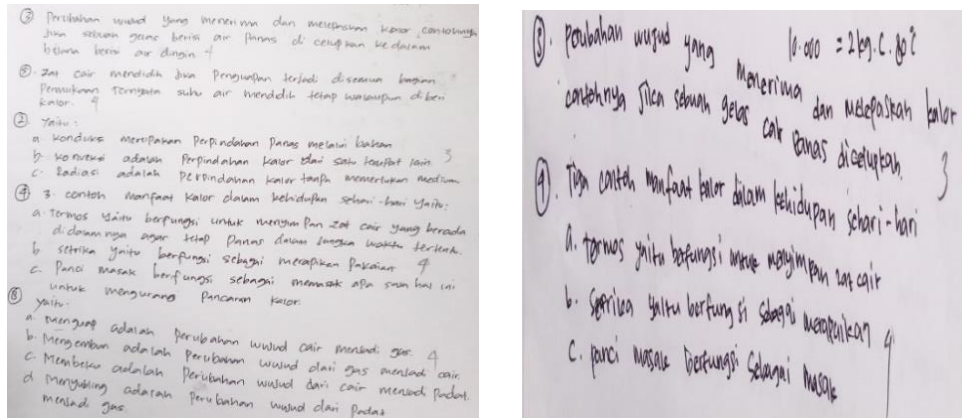 ③ Perubahan wujud yang menerima dan melepaskan kalor, contohnya
Jika sebuah gelas berisi air Panas di celupkan kedalam
berisi air dingin 4
⑤. zat cair mendidih jika Penguapan terjadi disemua bagian
Permukaan Ternyata suhu air mendidih tetap walaupun diberi
kalor. 4
② Yaitu:
a konduksi merupakan Perpindahan Panas melalui bahan
b konveksi adalah Perpindahan kalor dari satu tempat lain 3
c. Radiasi adalah Perpindahan kalor tanpa memerlukan medium
④ 3. contoh manfaat kalor dalam kehidupan sehari-hari yaitu:
a. Termos yaitu berfungsi untuk menyimpan zat cair yang berada
didalamnya agar tetap Panas dalam jangka waktu
b setrika yaitu berfungsi sebagai merapikan Pakaian 4
c. Panci masak berfungsi sebagai memasak apa saja hal ini
untuk mengurang Pancaran kalor
⑧ yaitu.
a. menguap adalah Perubahan wujud cair menjadi gas. 4
b. Mengembun adalah Perubahan wujud dari gas menjadi cair.
c. Membeku adalah Perubahan wujud dari cair menjadi Padat.
d adalah Perubahan wujud dari Padat
menjadi gas.
10.000 = 2 kg. C. 80°C
③. perubahan wujud yang menerima dan melepaskan kalor
contohnya Jika sebuah gelas cair panas dicelupkan. 3
④. Tiga contoh manfaat kalor dalam kehidupan sehari-hari
a. termos yaitu berfungsi untuk menyimpan zat cair
b. yaitu berfungsi sebagai 4
c. panci masak berfungsi sebagai masak